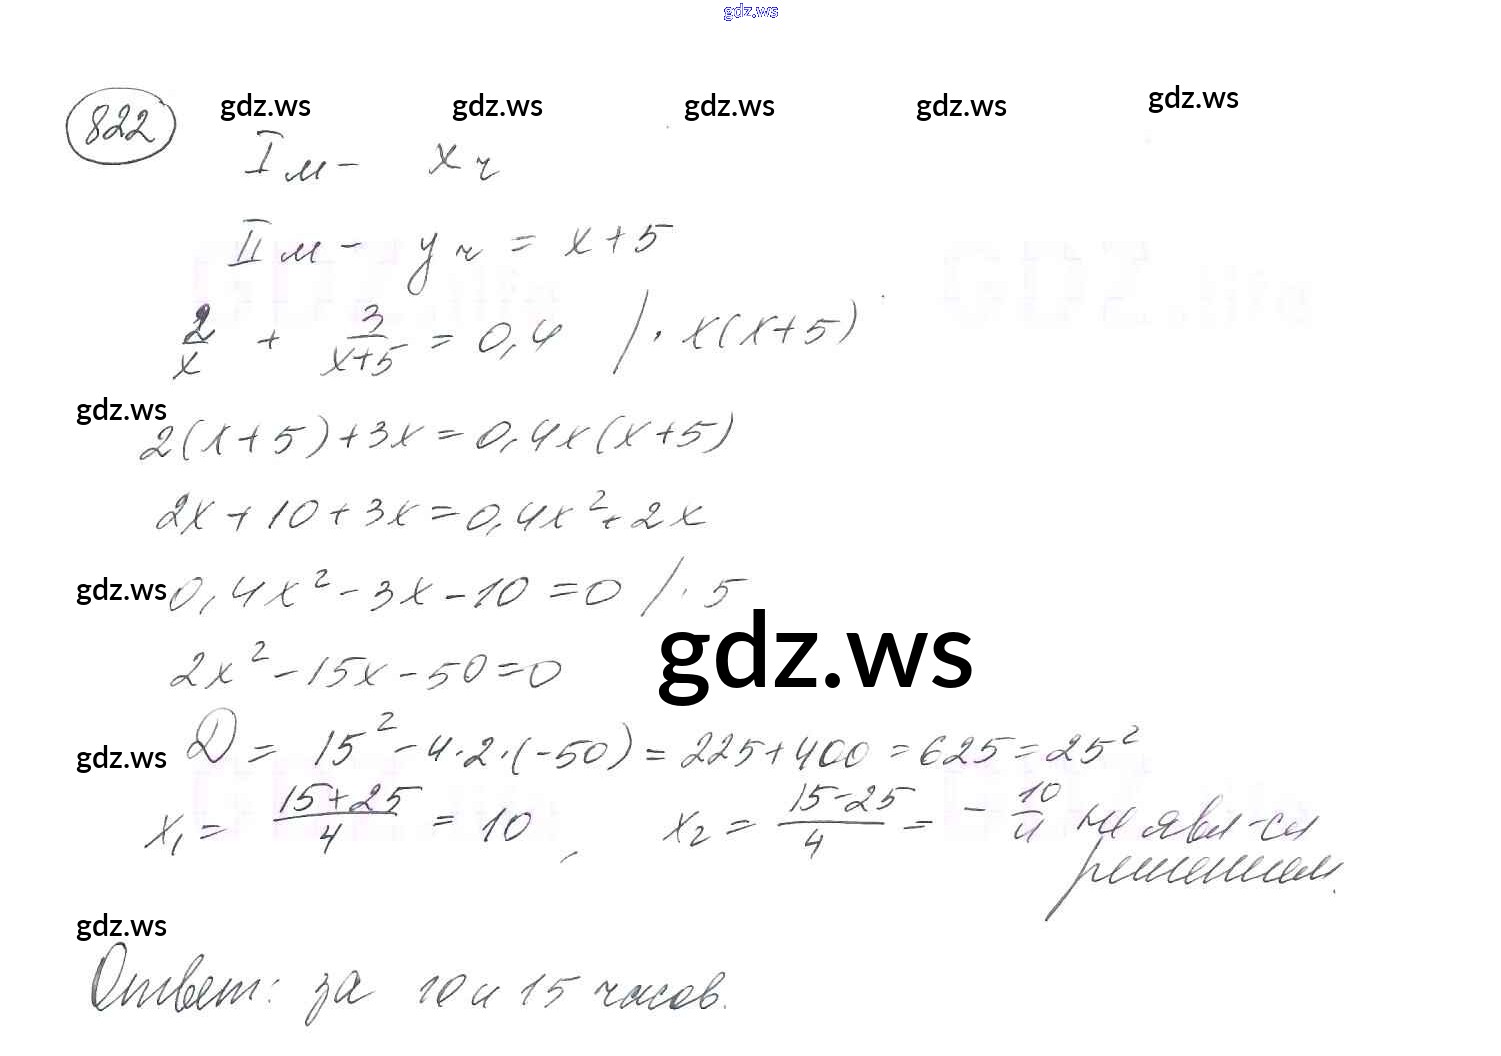 gdz.ws
822
gdz.ws gdz.ws gdz.ws gdz.ws gdz.ws
I м - x ч
II м - y ч = x + 5
2/x + 3/(x+5) = 0,4 / · x(x+5)
gdz.ws
2(x+5)+3x=0,4x(x+5)
2x+10+3x=0,4x²+2x
gdz.ws
0,4x²-3x-10=0 /·5
gdz.ws
2x²-15x-50=0
gdz.ws
D = 15²-4·2·(-50)=225+400=625=25²
x₁= (15+25)/4 = 10, x₂ = (15-25)/4 = - 10/4 не явл-ся
решением.
gdz.ws
Ответ: за 10 и 15 часов.